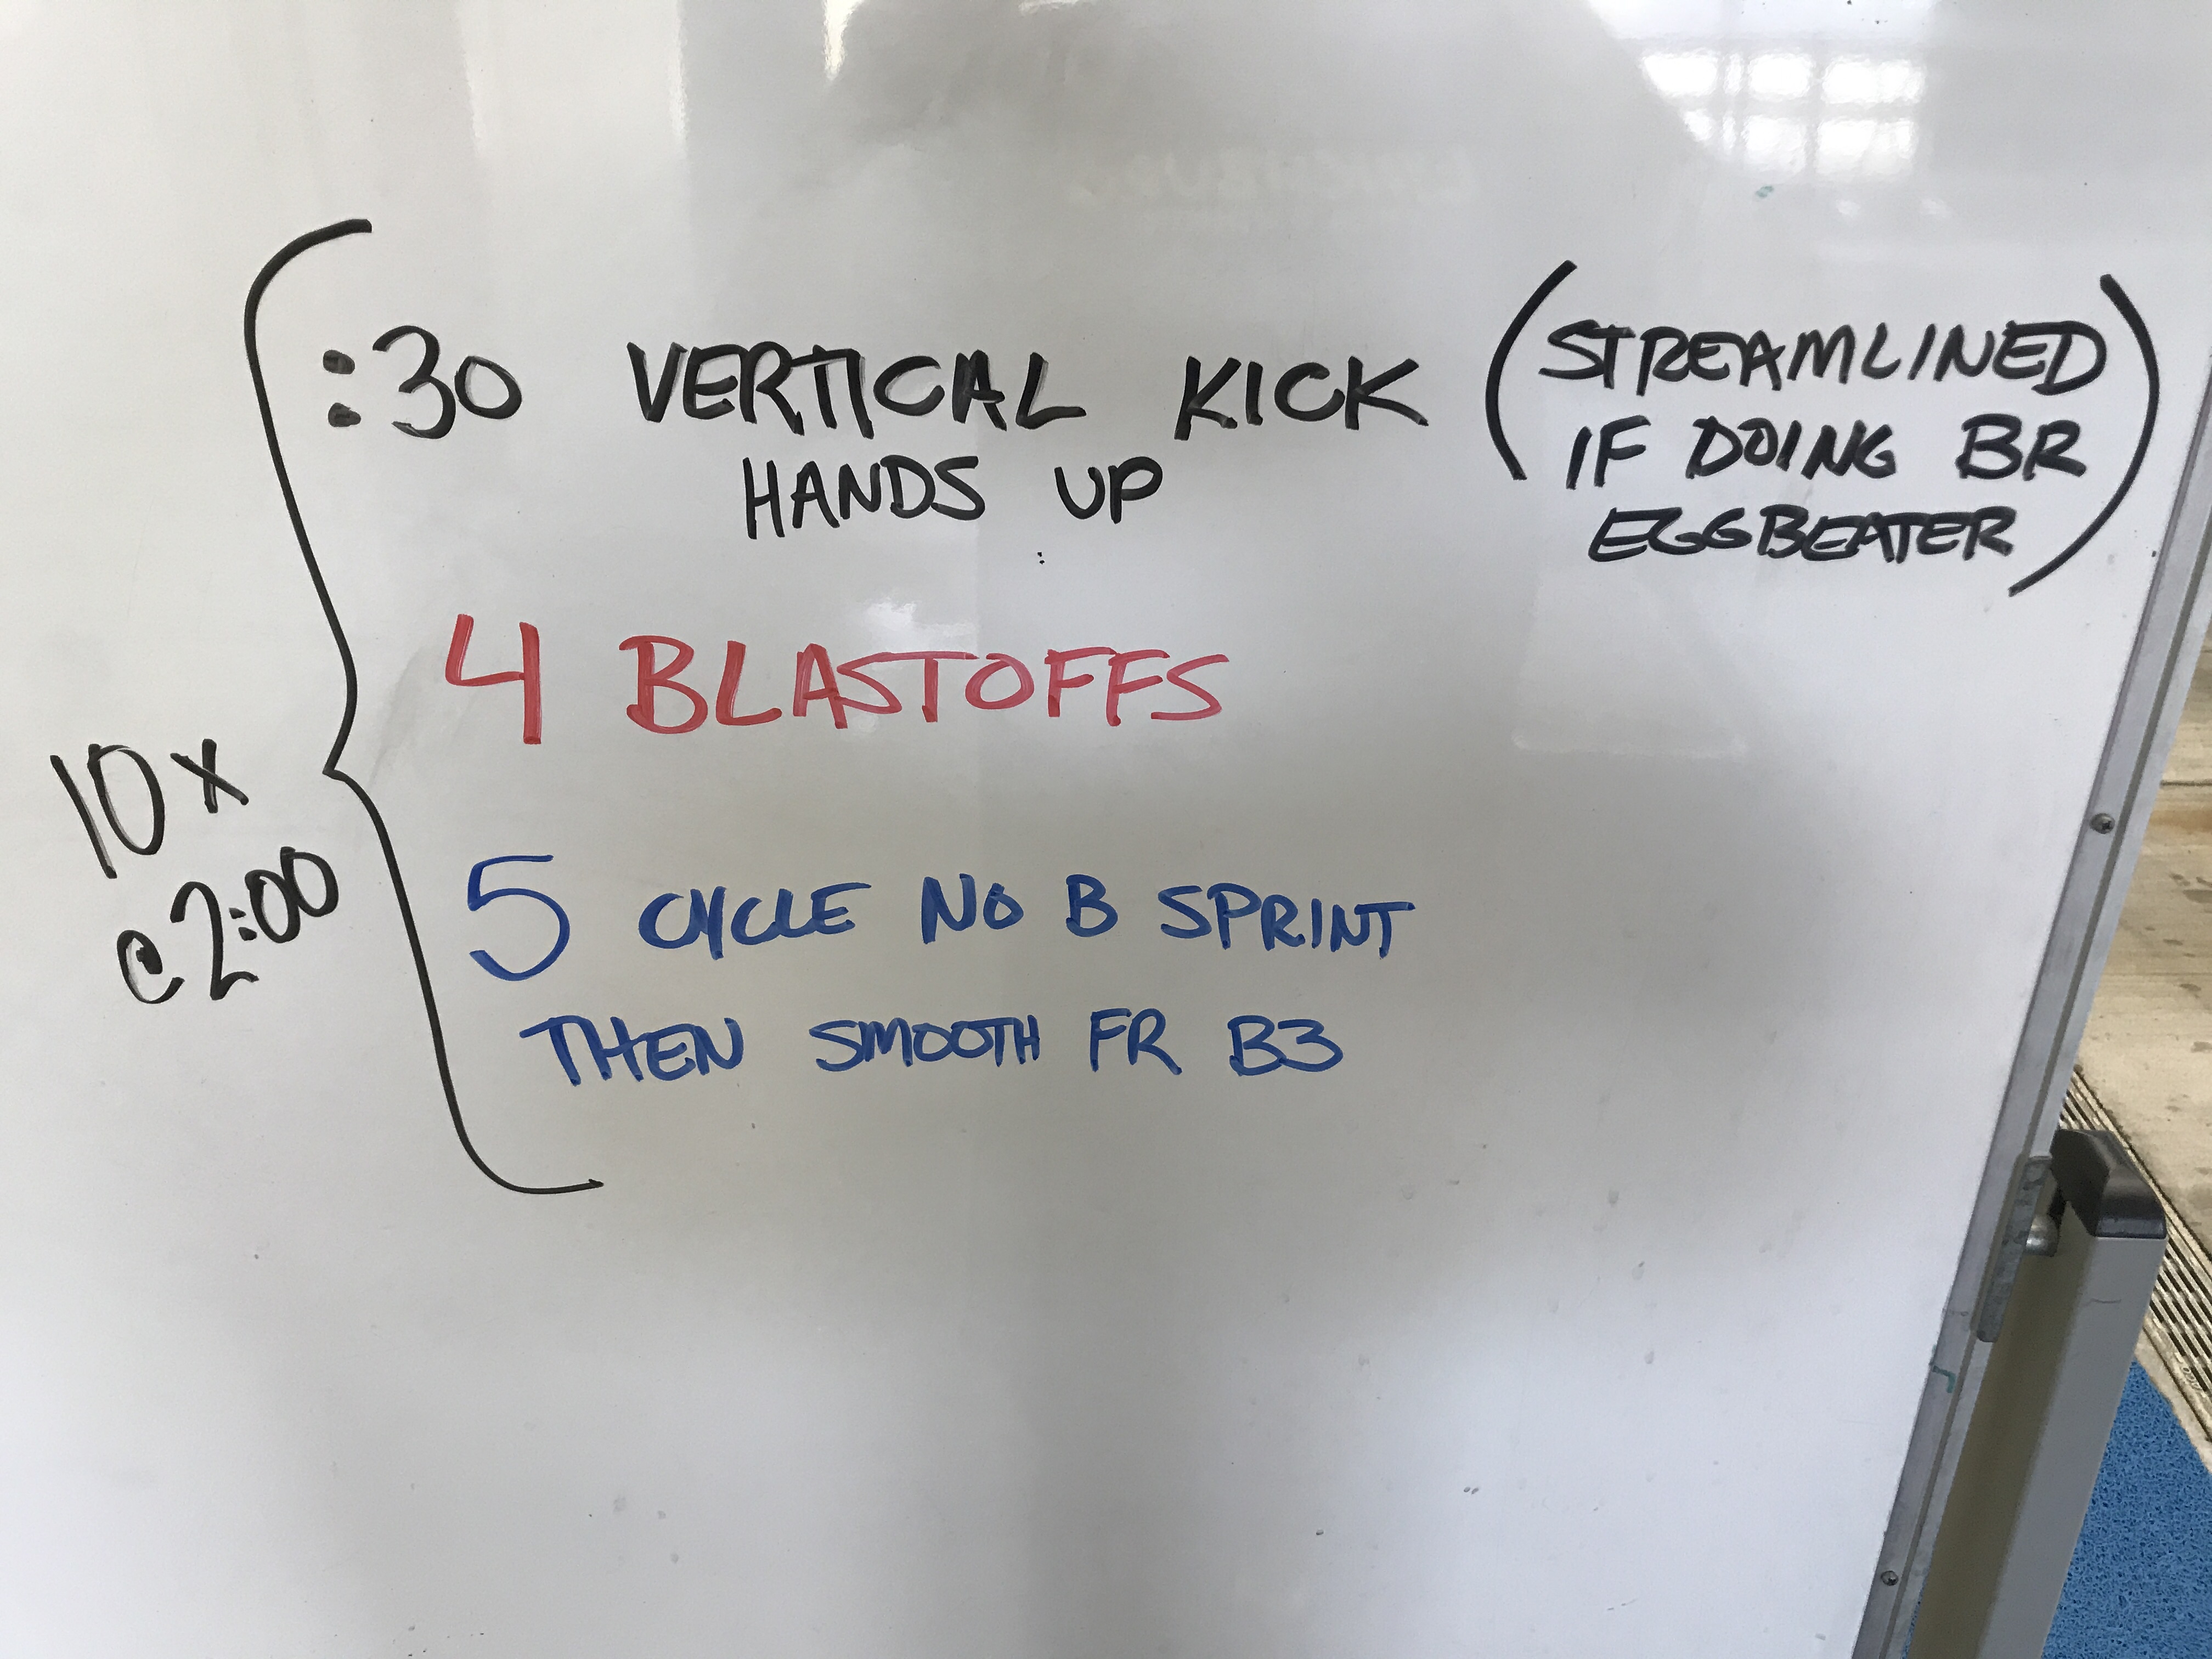 10x
@2:00
:30 VERTICAL KICK
HANDS UP
(STREAMLINED
IF DOING BR
EGGBEATER)
4 BLASTOFFS
5 CYCLE NO B SPRINT
THEN SMOOTH FR B3